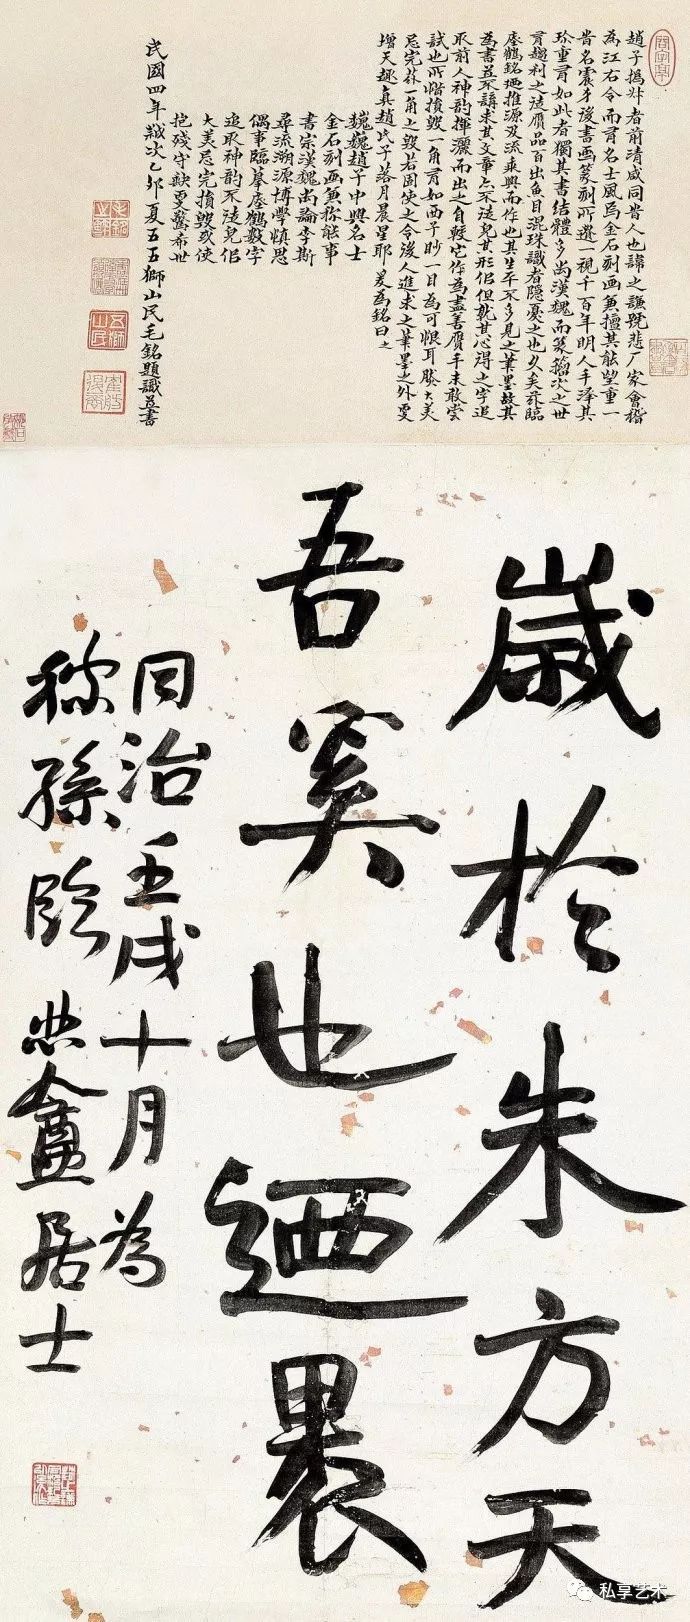 趙子撝叔者前清咸同昔人也諱之謙號悲厂家會稽
為江右令而有名士風為金石刻画兼擅其能望重一
昔名震身後書画篆刻所遺一視千百年明人手澤其
珍重有如此者獨其書結體多尚漢魏而篆籀次之世
有趨利之徒贋品百出魚目混珠識者隱憂之也久矣茲臨
瘞鶴銘迺推源及流乘興而作也其生平不多見之筆墨故其
為書並不講求其文章亦不徒皃其形侣但就其心得之字追
取前人神韵揮灑而出之自它作為盡善贋手未敢嘗
試也所惜損毀一角有如西子眇一目為可恨耳大美
忌完一角之毀若固使之令後人追求之筆墨之外更
增天趣真趙氏子落月晨星耶 爰為銘曰
巍巍趙子中興名士
金石刻画兼称能事
書宗漢魏尚論李斯
尋流溯源博學慎思
偶事臨摹瘞鶴數字
追取神韵不徒皃侣
大美忌完損毀或使
抱殘守缺更驚希世
民國四年歲次乙卯夏五五獅山民毛銘題識並書
歲於朱方天
吾奚也迺裹
同治壬戌十月為
稼孫臨 悲盦居士
私享艺术